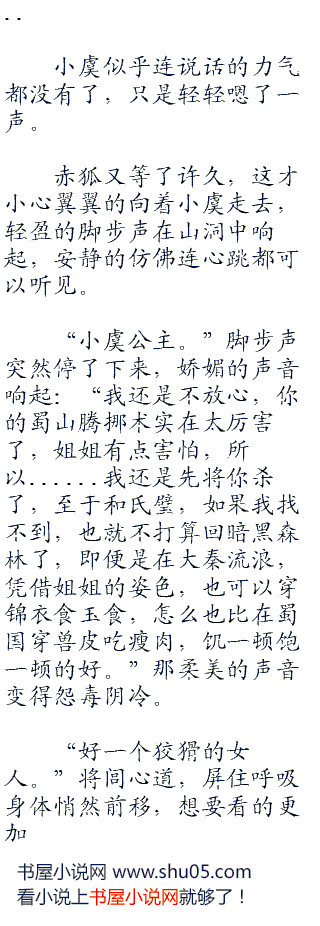 ..
小虞似乎连说话的力气
都没有了，只是轻轻嗯了一
声。
赤狐又等了许久，这才
小心翼翼的向着小虞走去，
轻盈的脚步声在山洞中响
起，安静的仿佛连心跳都可
以听见。
“小虞公主。”脚步声
突然停了下来，娇媚的声音
响起：“我还是不放心，你
的蜀山腾挪术实在太厉害
了，姐姐有点害怕，所
以......我还是先将你杀
了，至于和氏璧，如果我找
不到，也就不打算回暗黑森
林了，即便是在大秦流浪，
凭借姐姐的姿色，也可以穿
锦衣食玉食，怎么也比在蜀
国穿兽皮吃瘦肉，饥一顿饱
一顿的好。”那柔美的声音
变得怨毒阴冷。
“好一个狡猾的女
人。”将闾心道，屏住呼吸
身体悄然前移，想要看的更
加
书屋小说网 www.shu05.com
看小说上书屋小说网就够了！